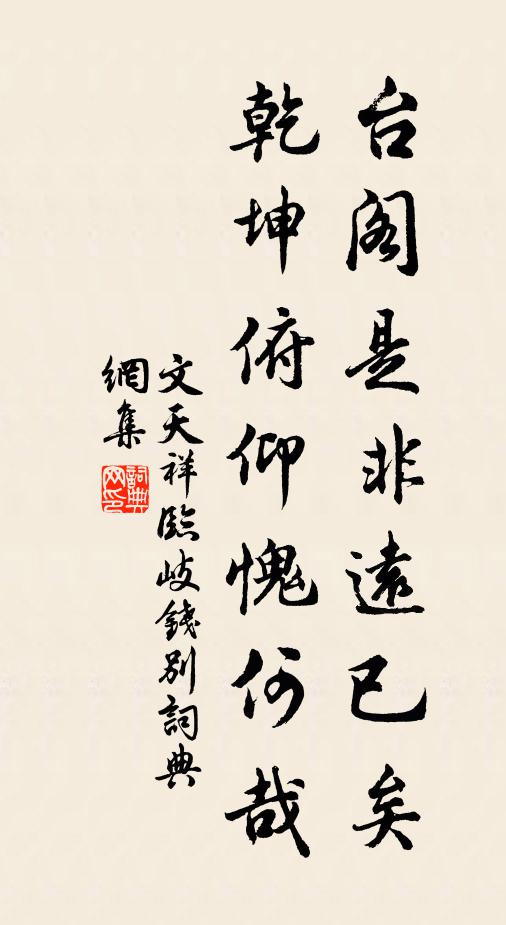 台閣是非遠已矣
乾坤俯仰愧何哉
文天祥臨岐錢別詞典
網集
詞典
网印